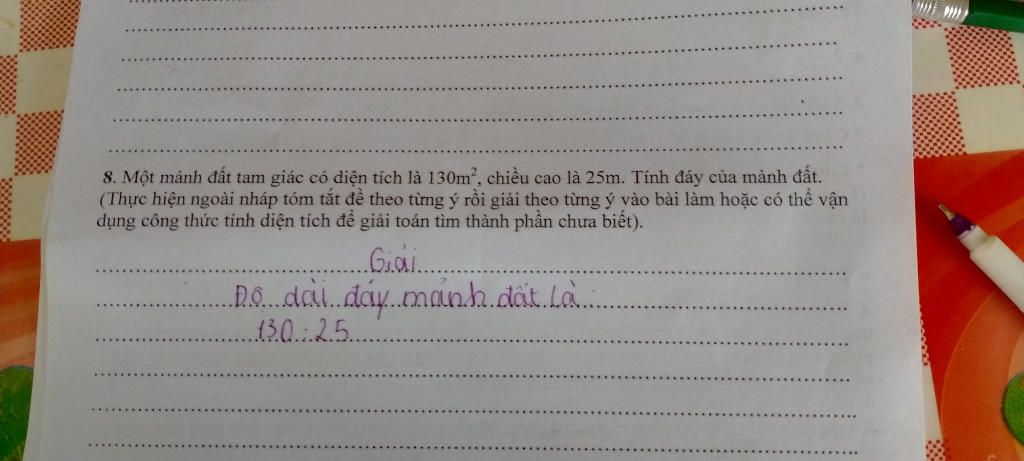 8. Một mảnh đất tam giác có diện tích là 130m², chiều cao là 25m. Tính đáy của mảnh đất.
(Thực hiện ngoài nháp tóm tắt đề theo từng ý rồi giải theo từng ý vào bài làm hoặc có thể vận
dụng công thức tính diện tích để giải toán tìm thành phần chưa biết).
Giải
Độ dài đáy mảnh đất là:
130 : 25